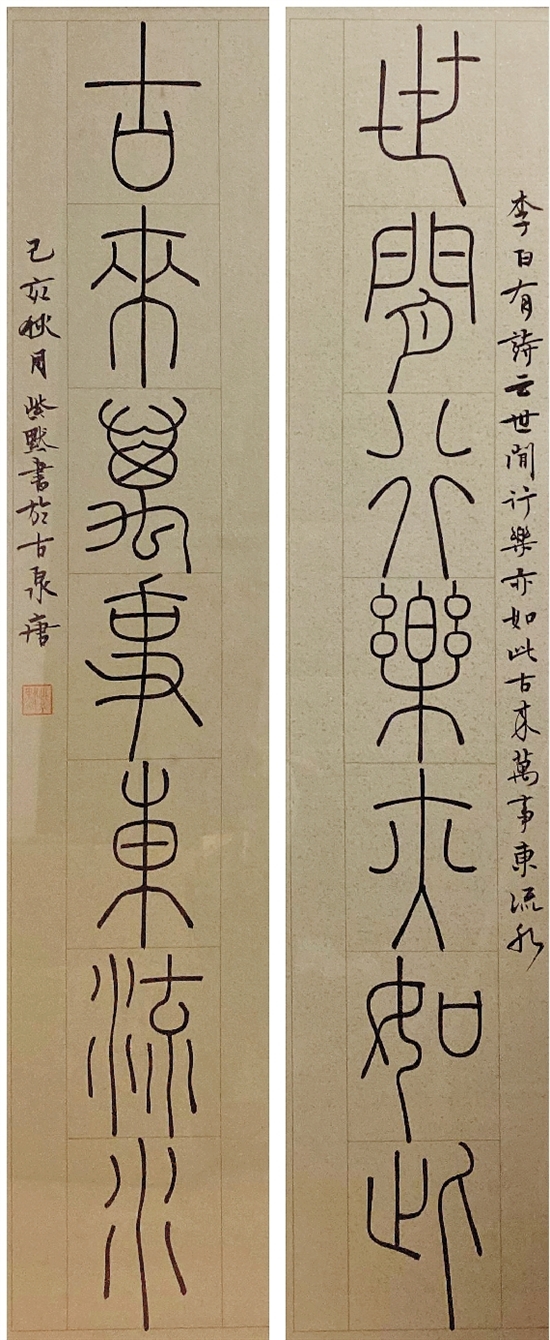 李白有詩云世間行樂亦如此古來萬事東流水
世間行樂亦如此
古來萬事東流水
己亥秋月紫默書於古泉唐